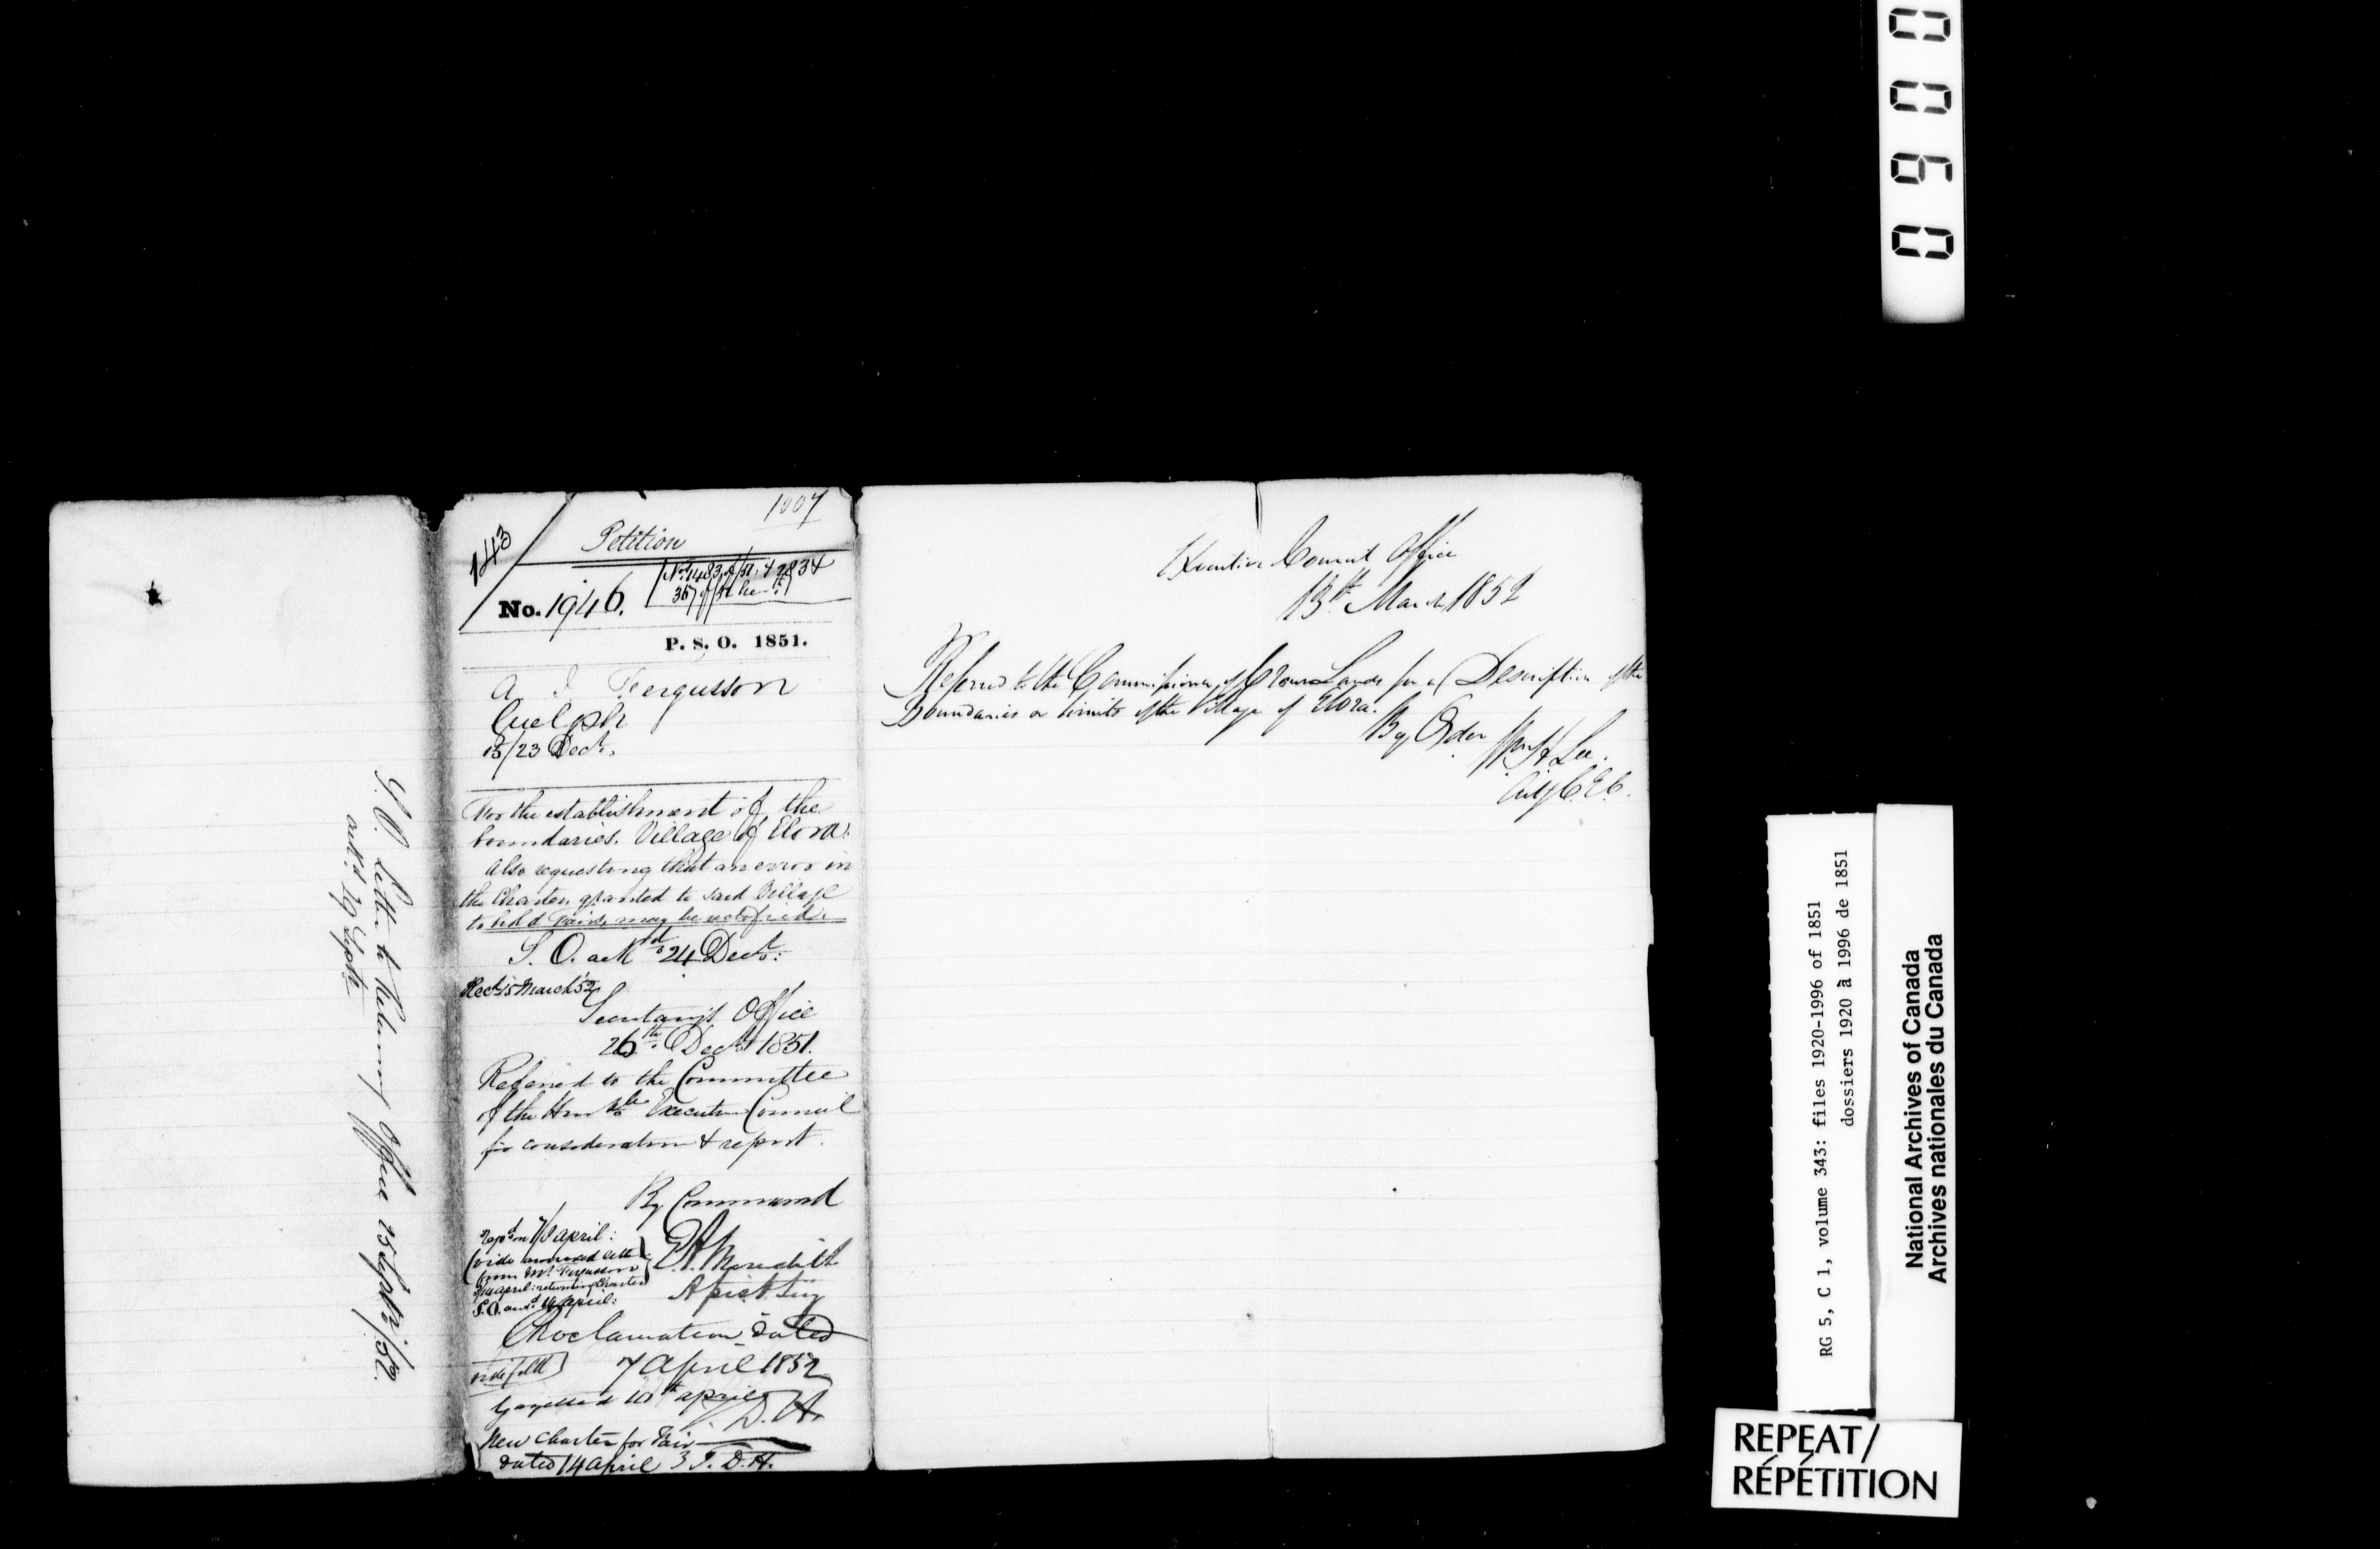 S.O. Letter to
Office 25 Sept. /52.
1007
143
Petition
No. 1946.
P. S. O. 1851.
A. J. Fergusson
Guelph
13/23 Decr.
For the establishment of the
boundaries. Village of Elora.
Also requesting that an error in
the Charter granted to said Village
to hold Fairs, may be rectified.
S. O. ackd 24 Decr:
Recd 15 March 52
Secretary's Office
26th Decr 1851.
Referred to the Committee
of the Honble Executive Council
for consideration & report.
By Command
E A Meredith
Assist Secy
Repd on 7/8 April:
(vide annexed lettr
from Mr. Fergusson
april: returning Charter)
S.O. ansd april:
Proclamation dated
7 April 1852
Gazetted 10th april
New Charter for Fair
dated 14 april 3 T. D. H.
Executive Council Office
13th March 1852
Referred to the Commissioner of Crown Lands for a Description of the
Boundaries or limits of the Village of Elora.
By Order
Wm H Lee.
C.E.C.
0 0 6 0
RG 5, C 1, volume 343: files 1920-1996 of 1851
dossiers 1920 à 1996 de 1851
National Archives of Canada
Archives nationales du Canada
REPEAT/
RÉPÉTITION